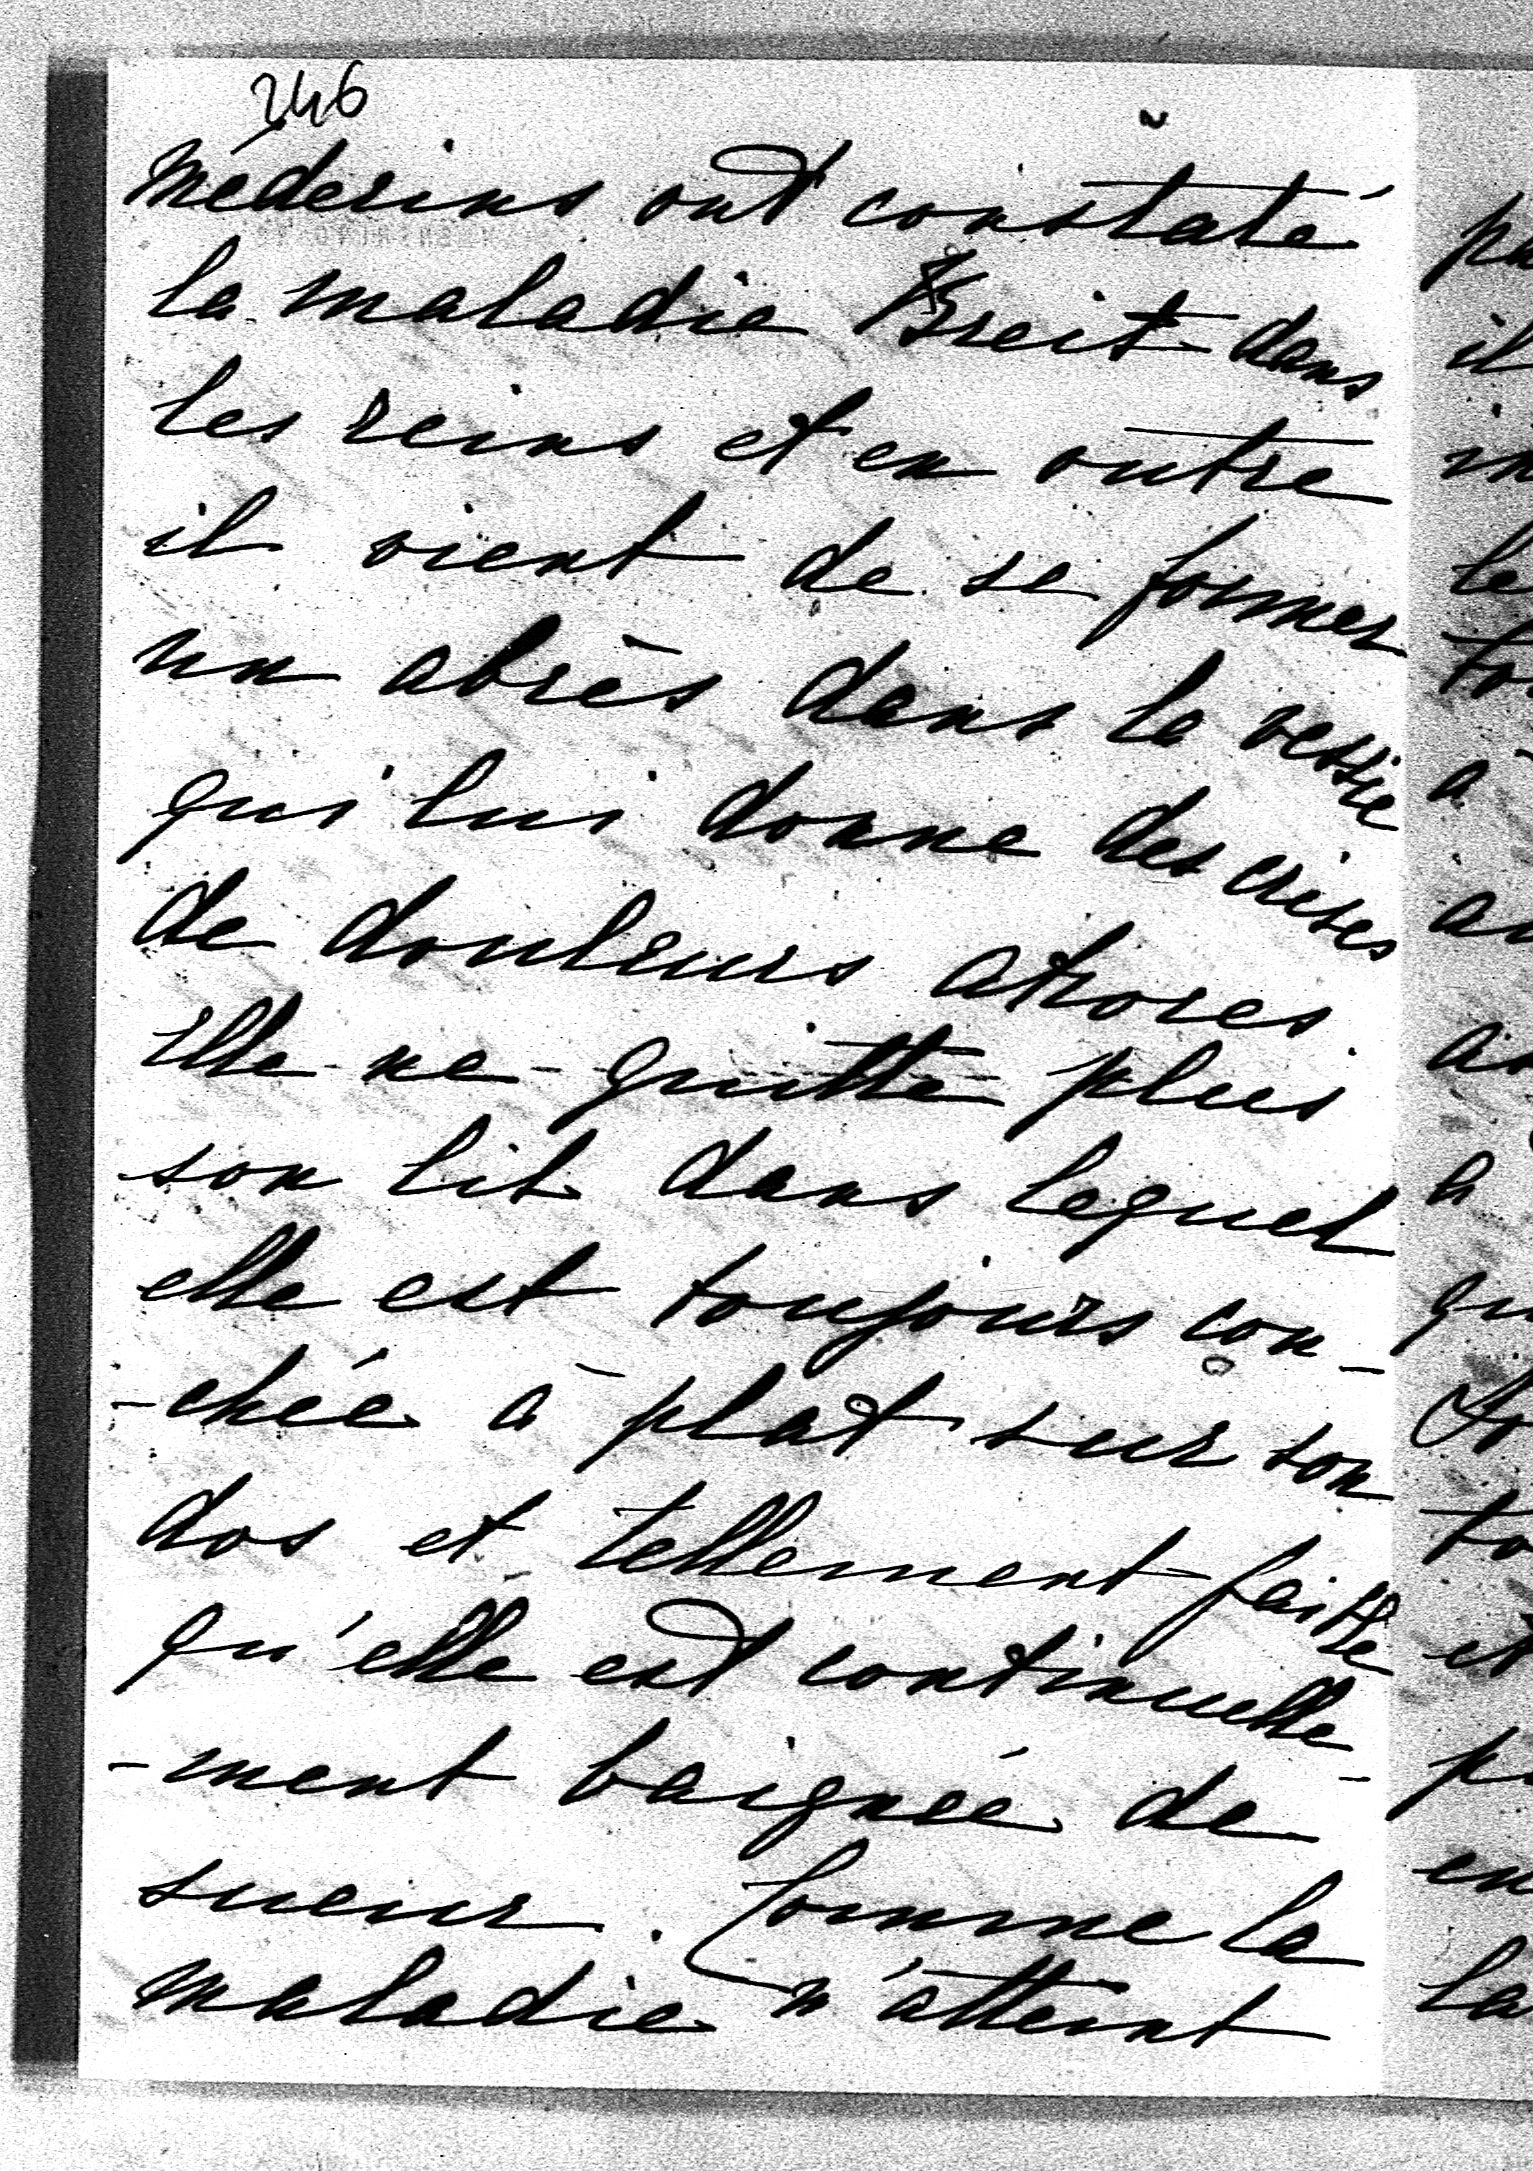 246
médecins ont constaté
la maladie Breit dans
les reins et en outre
il vient de se former
un abcès dans la vessie
qui lui donne des crises
de douleurs atroces.
Elle ne quitte plus
son lit dans lequel
elle est toujours cou-
-chée à plat sur son
dos et tellement faible
qu'elle est continuelle-
-ment baignée de
sueur. Comme la
maladie n'atteint